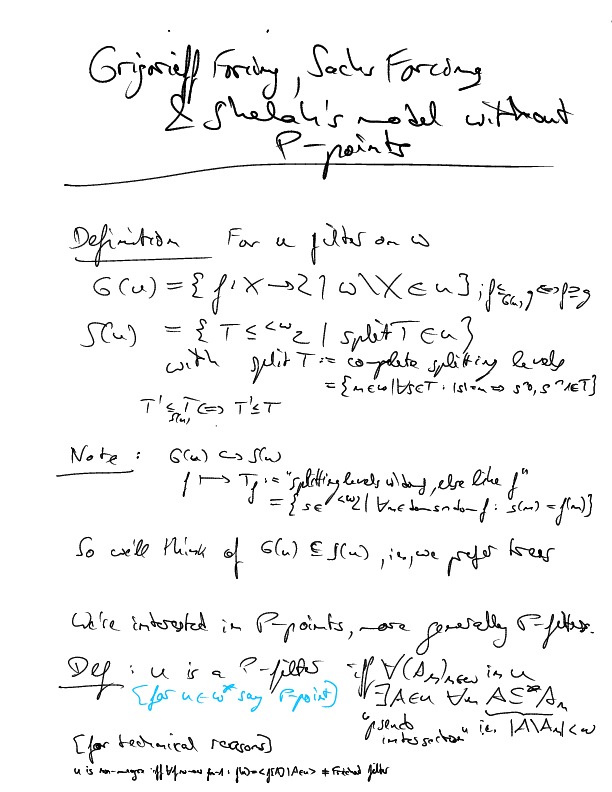 Grigorieff Forcing, Sacks Forcing
& Shelah's model without
P-points
Definition For u filter on ω
G(u) = { f: X → 2 | ω \ X ∈ u } ; f ≤_G(u) g ⇔ f ⊇ g
S(u) = { T ≤ ^<ω 2 | split T ∈ u }
with split T := complete splitting levels
= { n ∈ ω | ∀s ∈ T : |s| = n ⇒ s⌢0, s⌢1 ∈ T }
T' ≤_S(u) T ⇔ T' ≤ T
Note : G(u) ↪ S(u)
f ↦ T_f := "splitting levels ω\dom f, else like f"
= { s ∈ ^<ω 2 | ∀n ∈ dom s ∩ dom f : s(n) = f(n) }
So we'll think of G(u) ⊆ S(u), ie, we prefer trees
We're interested in P-points, more generally P-filters.
Def : u is a P-filter iff ∀(A_n)_n∈ω in u
[for u ∈ ω* say P-point] ∃A ∈ u ∀n A ⊆* A_n
"pseudo intersection" ie. |A \ A_n| < ω
[for technical reasons]
u is non-meagre iff
≠ Fréchet filter